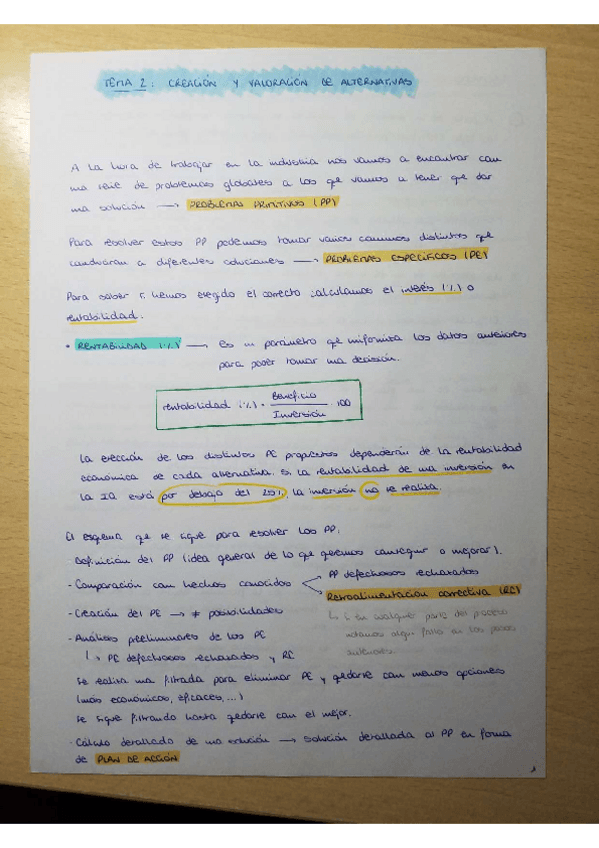 TEMA 2: CREACIÓN Y VALORACIÓN DE ALTERNATIVAS
A la hora de trabajar en la industria nos vamos a encontrar con
una serie de problemas globales a los que vamos a tener que dar
una solución → PROBLEMAS PRIMITIVOS (PP)
Para resolver estos PP podemos tomar varios caminos distintos que
conducirán a diferentes soluciones → PROBLEMAS ESPECÍFICOS (PE)
Para saber si hemos elegido el correcto calculamos el interés (%) o
rentabilidad.
• RENTABILIDAD (%) → Es un parámetro que uniformiza los datos anteriores
para poder tomar una decisión.
rentabilidad (%) = Beneficio / Inversión · 100
La elección de los distintos PE propuestos dependerán de la rentabilidad
económica de cada alternativa. Si la rentabilidad de una inversión en
la IQ está por debajo del 25%, la inversión no se realiza.
El esquema que se sigue para resolver los PP:
Definición del PP (idea general de lo que queremos conseguir o mejorar).
- Comparación con hechos conocidos
PP defectuosos rechazados
Retroalimentación correctiva (RC)
- Creación del PE → ≠ posibilidades
↳ si en cualquier parte del proceso
notamos algún fallo en los pasos
anteriores.
- Análisis preliminares de los PE
↳ PE defectuosos rechazados y RC
Se realiza una filtrada para eliminar PE y quedarse con menos opciones
(más económicos, eficaces, ...)
Se sigue filtrando hasta quedarse con el mejor.
- Cálculo detallado de una solución → solución detallada al PP en forma
de PLAN DE ACCIÓN
1